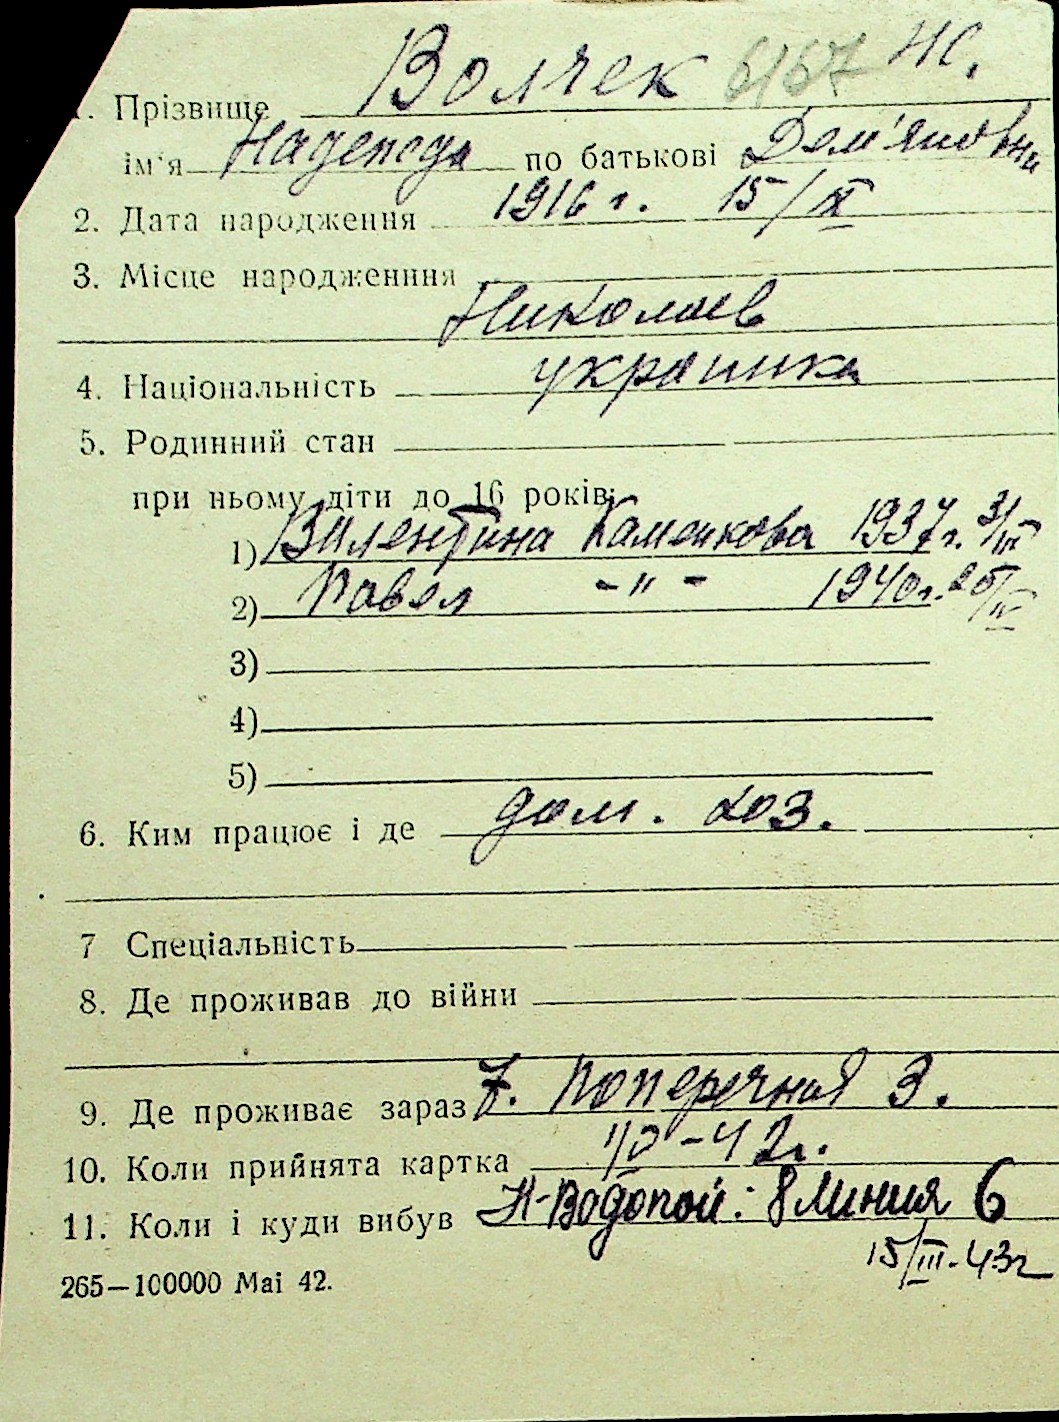 1. Прізвище Волчек 6167 Ж.
ім'я Надежда по батькові Дем'яновна
2. Дата народження 1916 г. 15/IX
3. Місце народженння
Николаев
4. Національність украинка
5. Родинний стан
при ньому діти до 16 років:
1) Валентина Каменкова 1937 г. 31/III
2) Павел -"- 1940 г. 25/IV
3)
4)
5)
6. Ким працює і де дом. хоз.
7 Спеціальність
8. Де проживав до війни
9. Де проживає зараз 7. Поперечная 3.
10. Коли прийнята картка -42г.
11. Коли і куди вибув Н-Водопой: 8 Линия 6
15/III-43г
265—100000 Mai 42.